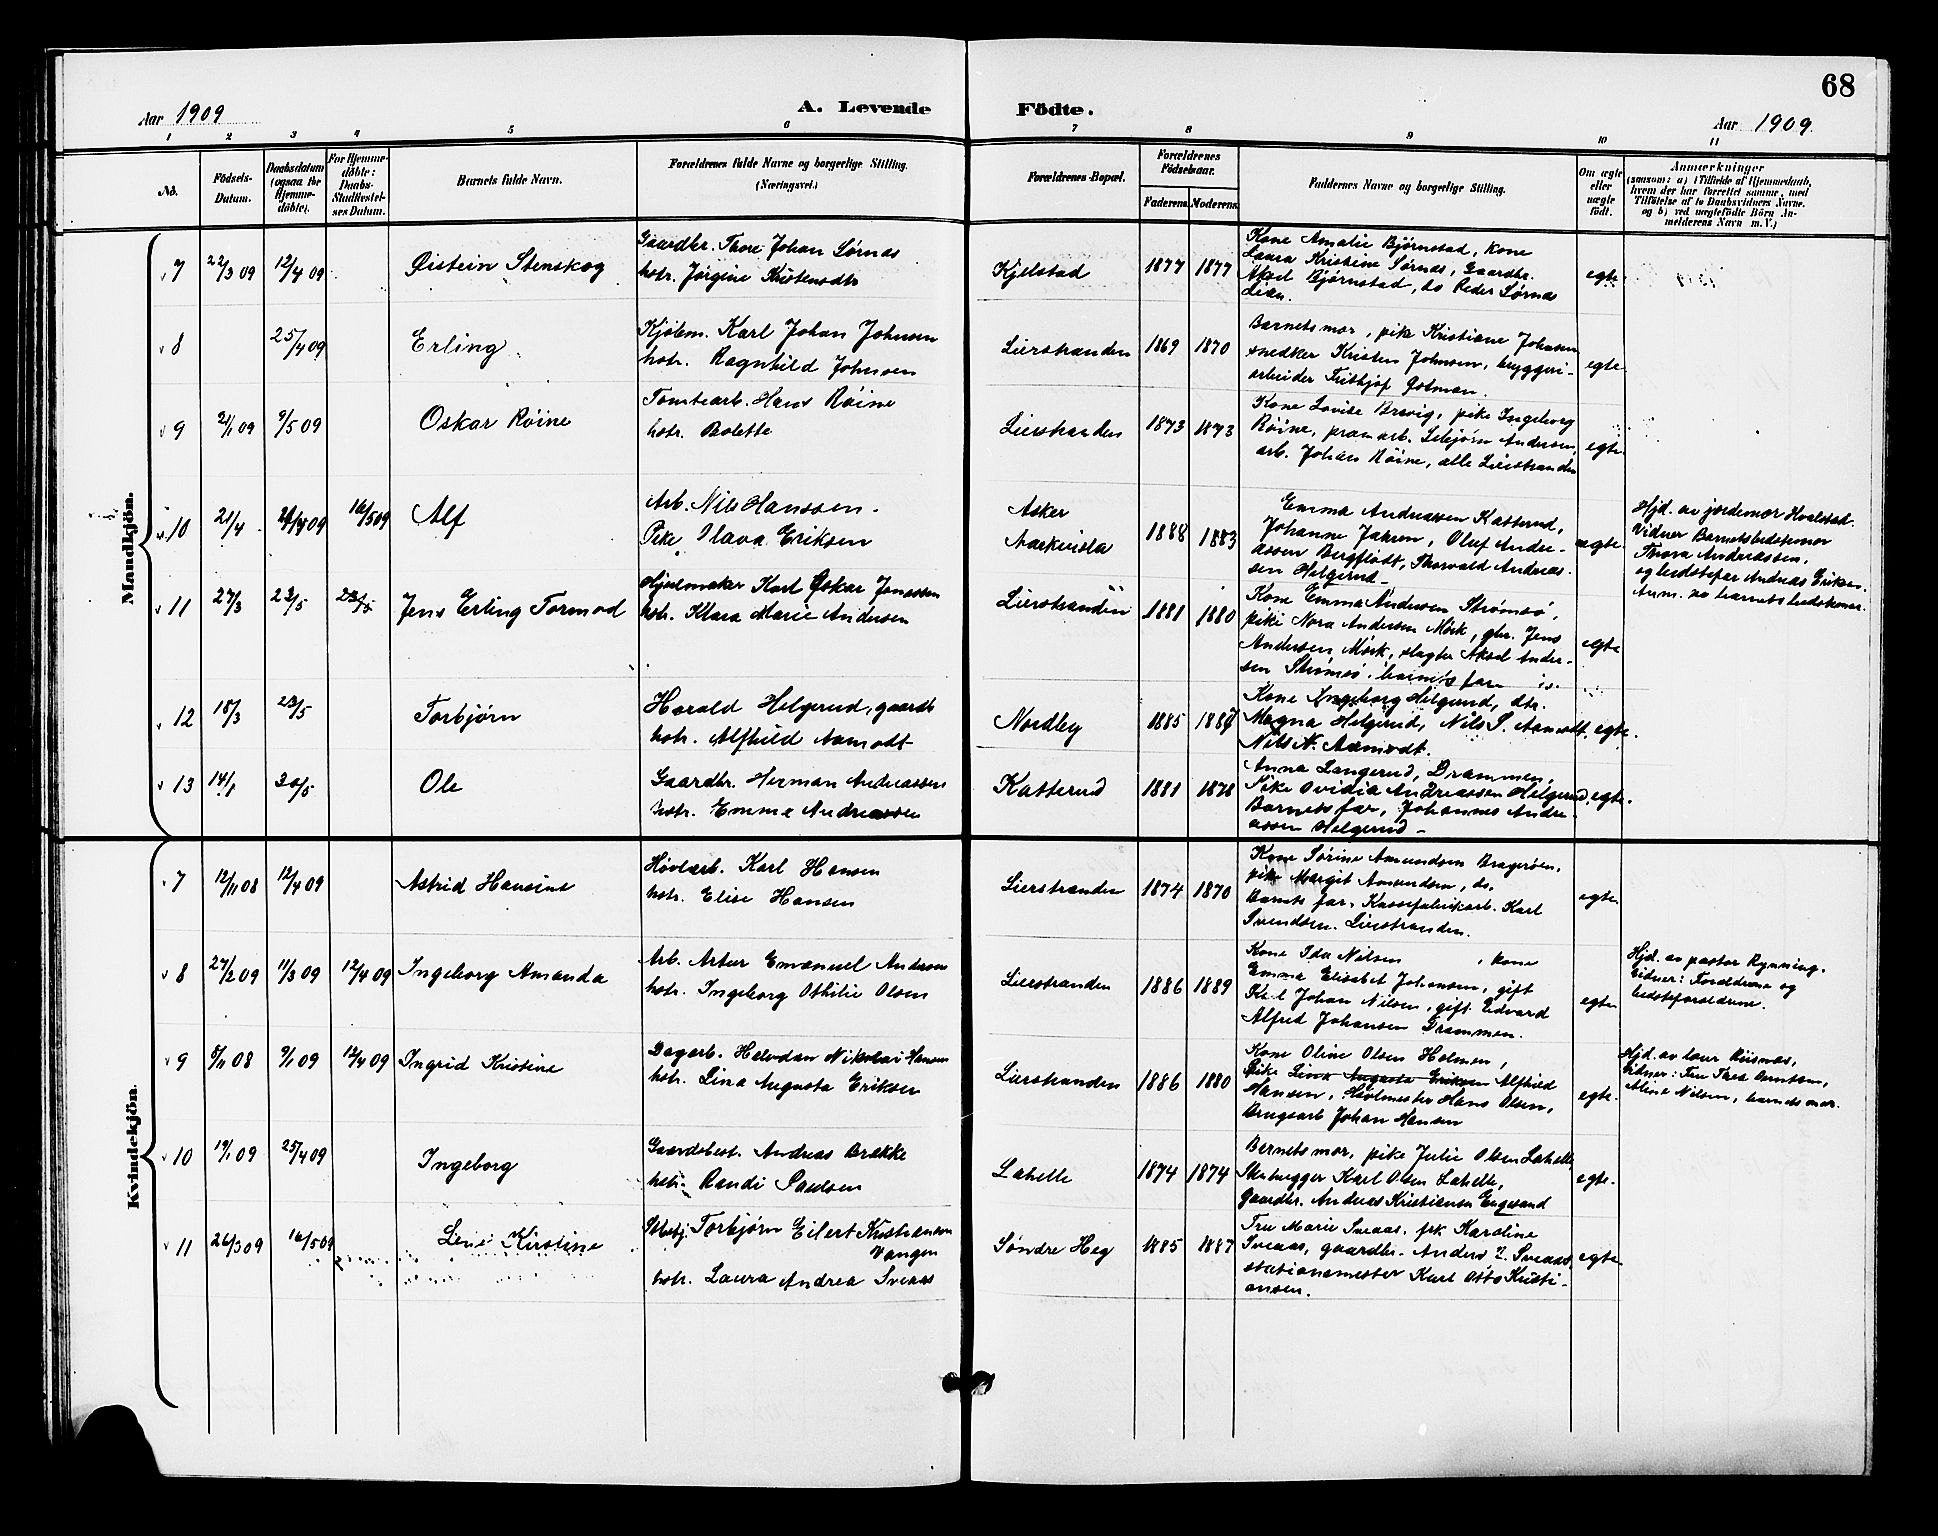 68
Aar 1909
A. Levende Födte.
Aar 1909
1 2 3 4 5 6 7 8 9 10 11
No.
Födsels-Datum.
Daabsdatum (ogsaa for Hjemme-döbte).
For Hjemme-döbte: Daabs-Stadfæstel-ses Datum.
Barnets fulde Navn.
Forældrenes fulde Navne og borgerlige Stilling.
(Næringsvei.)
Forældrenes Bopæl.
Forældrenes Födselsaar.
Faderens. Moderens.
Faddernes Navne og borgerlige Stilling.
Om ægte eller uægte födt.
Anmærkninger
(saasom: a) i Tilfælde af Hjemmedaab,
hvem der har forrettet samme, med
Tilföielse af to Daabsvidners Navne.
og b) ved uægtefödte Börn An-
melderens Navn m. V.)
Mandkjön.
7 22/3 09 12/4 09
Øistein Stenskog
Gaardbr. Thore Johan Sørnæs
hstr. Jørgine Kristensdtr
Kjelstad
1877 1877
Kone Amalie Bjørnstad, kone
Laura Kristine Sørnæs, Gaardbr.
Aksel Bjørnstad, do Peder Sørnæs
Lien.
egte.
8 25/4 09
Erling
Kjølem. Karl Johan Johnsen
hstr. Ragnhild Johnsen
Lierstranden
1869 1870
Barnets mor, pike Kristiane Johnsen
snedker Kristen Johnsen, bryggeri-
arbeider Frithjof Østman.
egte.
9 21/1 09 9/5 09
Oskar Røine
Tomtearb. Hans Røine
hstr. Bolette
Lierstranden
1873 1873
Kone Lovise Brevig, pike Ingeborg
Røine, pramarb. Andersen,
arb. Johan Røine, alle Lierstranden
egte.
10 21/4 24/4 09 16/5 09
Alf
Arb. Nils Hanssen.
Pike Olava Eriksen
Asker
1888 1883
Emma Andreassen Katterud,
Johanne, Oluf Andre-
assen Bergflødt, Thorvald Andreas-
sen Helgerud.
uegte.
Hjd. av jordemor Hvalstad.
Vidner Barnets bedstemor
Thora Andreassen,
og bedstefar Andreas Eriksen.
Anm. av barnets bedstemor.
11 27/3 23/5 23/5
Jens Erling Tormod
Hjulmaker Karl Oskar Jonassen
hstr. Klara Marie Andersen
Lierstranden
1881 1880
Kone Emma Andersen Strømsø,
pike Nora Andersen Mørk, gbr. Jens
Andersen Mørk, slagter Aksel Ander-
sen Strømsø. barnets far
egte
12 18/3 23/5
Torbjørn
Harald Helgerud, gaardb
hstr. Alfhild Aamodt
Nordby
1885 1887
Kone Ingeborg Helgerud, dtr.
Magna Helgerud, Nils S. Aamodt,
Nils N. Aamodt.
egte.
13 14/1 30/5
Ole
Gaardbr. Herman Andreassen
hstr. Emma Andreassen
Katterud
1881 1878
Anna Langerud, Drammen,
Pike Ovidia Andreassen Helgerud,
Barnets far, Johannes Andre-
assen Helgerud
egte.
Kvindekjön.
7 12/11 08 12/4 09
Astrid Hansine
Høvlearb. Karl Hansen
hstr. Elise Hansen
Lierstranden
1874 1870
Kone Sørine Amundsen Bragerøen,
pike Margit Amundsen, do.
Barnets far, Kassefabrikarb. Karl
Svendsen. Lierstranden.
egte.
8 27/2 09 11/3 09 12/4 09
Ingeborg Amanda
Arb. Artur Emanuel Andersen
hstr. Ingeborg Othilie Olsen
Lierstranden
1886 1889
Kone Ida Nilsen, kone
Emma Elisabet Johansen, gift
Karl Johan Nilsen, gift Edvard
Alfred Johansen Drammen.
egte
Hjd. av pastor Rynning.
Vidner: Foreldrene og
bedsteforeldrene.
9 5/11 08 9/1 09 12/4 09
Ingrid Kristine
Dagarb. Halvdan Nikolai Hansen
hstr. Lina Augusta Eriksen
Lierstranden
1886 1880
Kone Oline Olsen Holmen,
Pike Lina Augusta Eriksen Alfhild
Hansen, Høvlmester Hans Olsen,
Brugsarb Johan Hansen
egte.
Hjd. av
Vidner: Fru Thea Berntsen,
Aline Nilsen, barnets mor.
10 19/1 09 25/4 09
Ingeborg
Gaardbest. Andreas Brække
hstr. Randi Paulsen
Lahelle
1874 1874
Barnets mor, pike Julie Olsen Lahelle,
Stenhugger Karl Olsen Lahelle,
Gaardbr. Andreas Kristiansen Engesand
egte.
11 26/3 09 16/5 09
Lene Kirstine
Torbjørn Eilert Kristiansen
Vangen
hstr. Laura Andrea Sveaas
Søndre Heg
1885 1887
Fru Marie Sveaas, frk Karoline
Sveaas, gaardbr. Anders L. Sveaas,
stationsmester Karl Otto Kristi-
ansen.
egte.